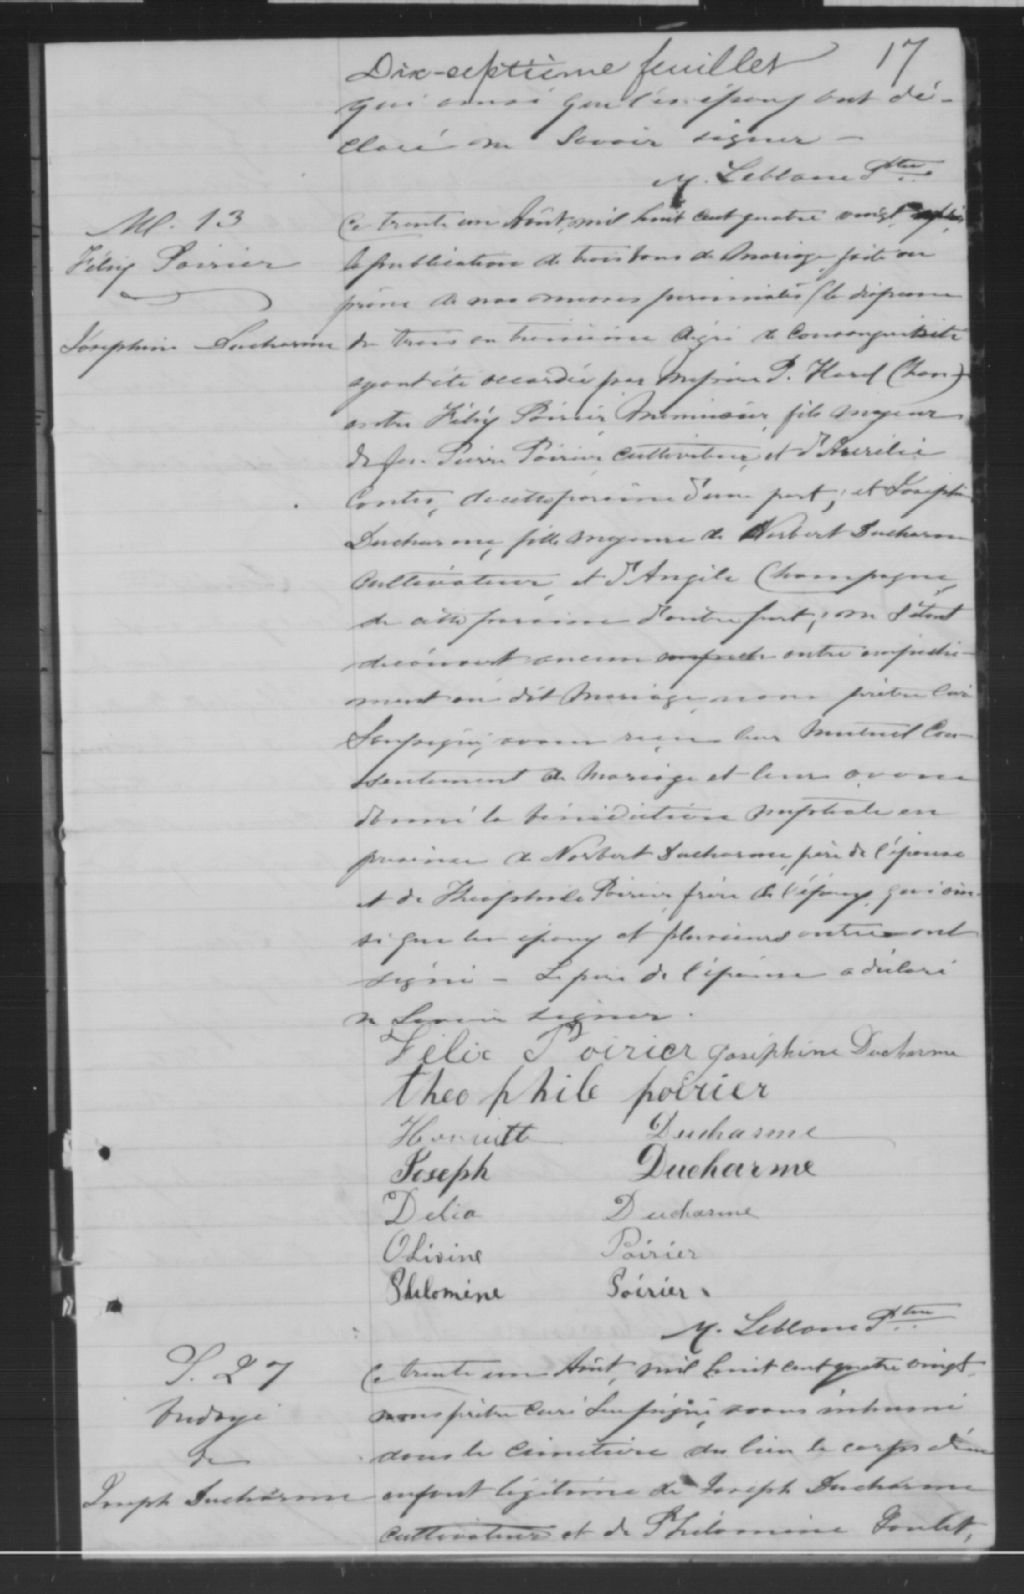 Dix-septième feuillet 17
qui ainsi que les époux ont dé-
claré ne savoir signer -
M. Leblanc Ptre
M. 13
Félix Poirier
Josephine Ducharme
Ce trente un Août, mil huit cent quatre vingt, après
la publication de trois bans de Mariage faite au
prône de nos messes paroissiales (la dispense
du trois au troisième dégré de consanguinité
ayant été accordée par Messire P. Harel Chan)
entre Félix Poirier, Menuisier, fils majeur
de feu Pierre Poirier, cultivateur, et d'Aurélie
Contré, de cette paroisse d'une part; et Josephine
Ducharme, fille majeure de Norbert Ducharme
cultivateur, et d'Angèle Champagne,
de cette paroisse d'autre part; ne s'étant
découvert aucun autre empêche-
ment au dit Mariage, nous prêtre Curé
Soussigné, avons reçu leur Mutuel Con-
sentement de Mariage et leur avons
donné la bénédiction nuptiale en
présence de Norbert Ducharme, père de l'épouse
et de Théophile Poirier, frère de l'époux, qui ain-
si que les époux et plusieurs autres ont
signé - Le père de l'épouse a déclaré
ne Savoir signer.
Félix Poirier Joséphine Ducharme
theophile poirier
Henriette Ducharme
Joseph Ducharme
Délia Ducharme
Olivine Poirier
Philomène Poirier
M. Leblanc Ptre
S. 27
Ondoyé
de
Joseph Ducharme
Ce trente un Août, mil huit cent quatre vingt,
nous prêtre curé Soussigné, avons inhumé
dans le cimetière du lieu le corps d'un
enfant légitime de Joseph Ducharme
cultivateur et de Philomène Houlet,